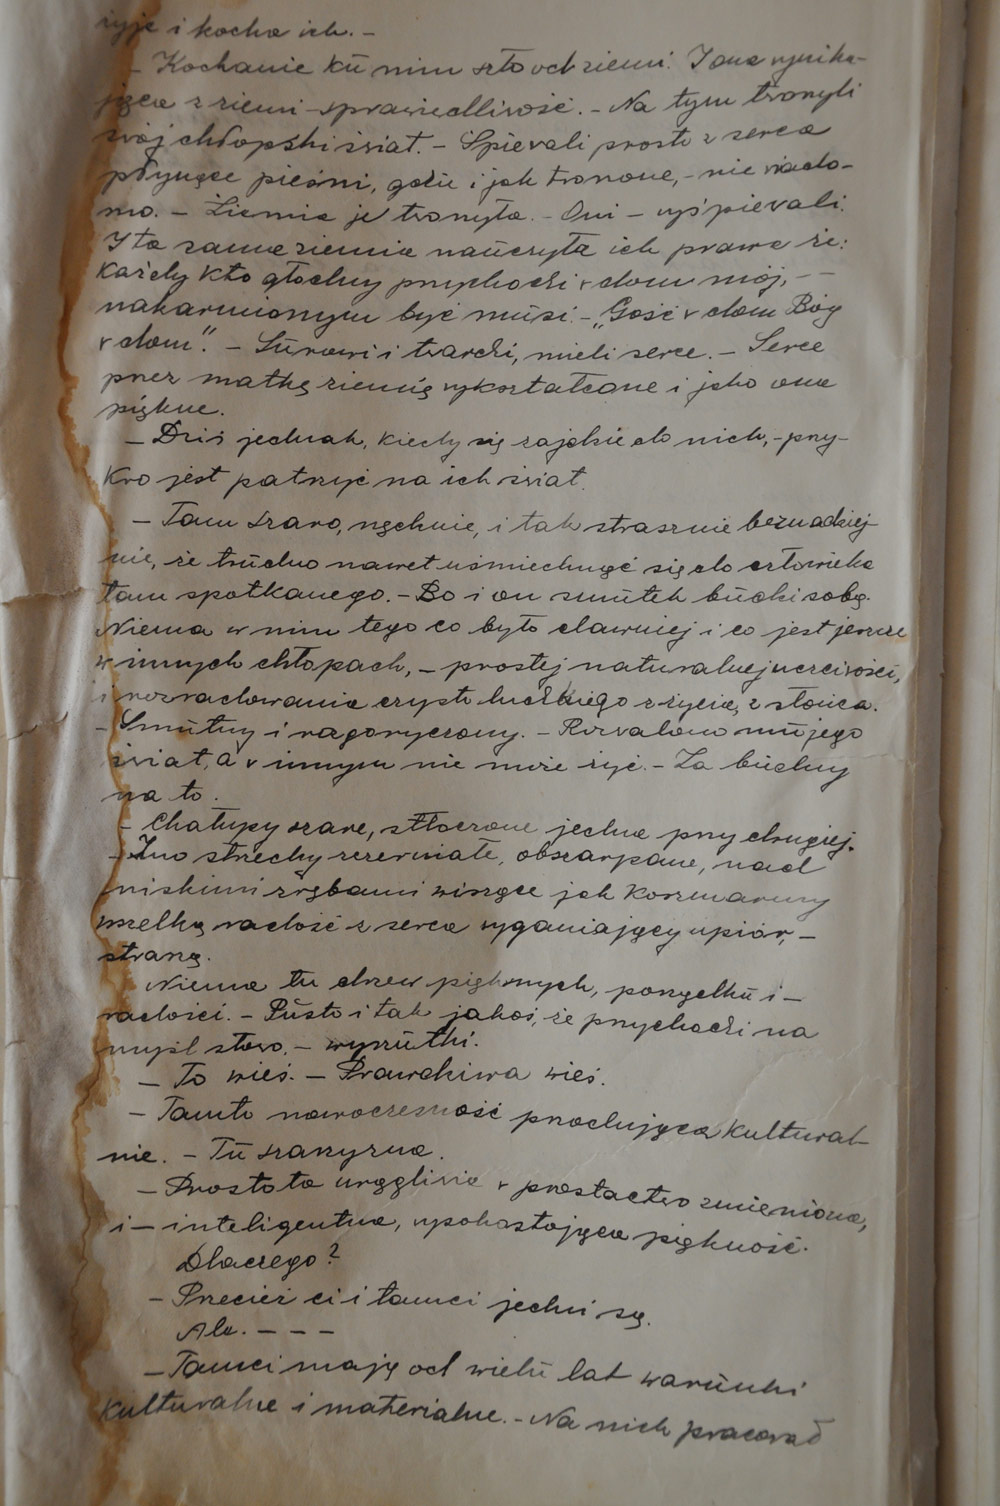 żyje i kocha ich. -
- Kochanie ku nim szło od ziemi. I ona wynika-
jąca z ziemi - sprawiedliwość. - Na tym tworzyli
swój chłopski świat. - Śpievali prosto z serca
płynące pieśni, gdzie i jak tworzone, - nie wiado-
mo. - Ziemia je tworzyła. - Oni - wyśpievali.
I ta sama ziemia nauczyła ich prawa że:
Każdy kto głodny przychodzi v dom mój, - -
nakarmionym być musi. - „Gość v dom Bóg
v dom". - Surowi i twardzi, mieli serce. - Serce
przez matkę ziemię wykształcone i jako ona
piękne.
- Dziś jednak, kiedy się zajdzie do nich, - przy-
kro jest patrzyć na ich świat.
- Tam szaro, nędznie, i tak strasznie beznadziej-
nie, że trudno nawet uśmiechnąć się do człowieka
tam spotkanego. - Bo i on smutek budzi sobą.
Niema w nim tego co było dawniej i co jest jeszcze
w innych chłopach, - prostej naturalnej uczciwości,
i rozradowania czysto ludzkiego z życia, z słońca.
- Smutny i zagoryczony. - Rozwalono mu jego
świat, a v innym nie może żyć. - Za biedny
na to.
- Chałupy szare, stłoczone jedna przy drugiej.
- Ino strzechy sczerniałe, obszarpane, nad
niskimi zrębami wiszące jak koszmarny
wszelką radość z serca wyganiający upiór, -
straszą.
Niema tu drzew pięknych, porządku i -
radości. - Pusto i tak jakoś, że przychodzi na
myśl słowo, - wyrzutki.
- To wieś. - Prawdziwa wieś.
- Tamto nowoczesność przodująca kultural-
nie. - Tu szarzyzna.
- Prostota urągliwie v prostactwo zmieniona,
i - inteligentna, wysokostojąca piękność.
Dlaczego?
- Przecież ci i tamci jedni są.
Ale. - - -
- Tamci mają od wielu lat warunki
kulturalne i materialne. - Na nich pracował